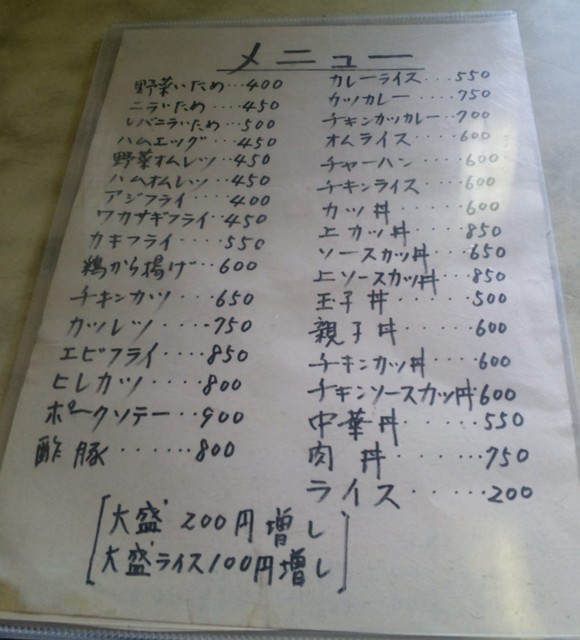 メニュー
野菜いため・・・400
ニラいため・・・450
レバニラいため・・・500
ハムエッグ・・・450
野菜オムレツ・・・450
ハムオムレツ・・・450
アジフライ・・・・400
ワカサギフライ・・450
カキフライ・・・・550
鶏から揚げ・・・600
チキンカツ・・・650
カツレツ・・・・750
エビフライ・・・・850
ヒレカツ・・・・800
ポークソテー・・・900
酢豚・・・・・・800
カレーライス・・・・550
カツカレー・・・・750
チキンカツカレー・・700
オムライス・・・・600
チャーハン・・・・600
チキンライス・・・600
カツ丼・・・・・600
上カツ丼・・・・・850
ソースカツ丼・・・650
上ソースカツ丼・・850
玉子丼・・・・・500
親子丼・・・・・600
チキンカツ丼・・・600
チキンソースカツ丼600
中華丼・・・・・550
肉丼・・・・・・750
ライス・・・・・・200
大盛 200円増し
大盛ライス100円増し